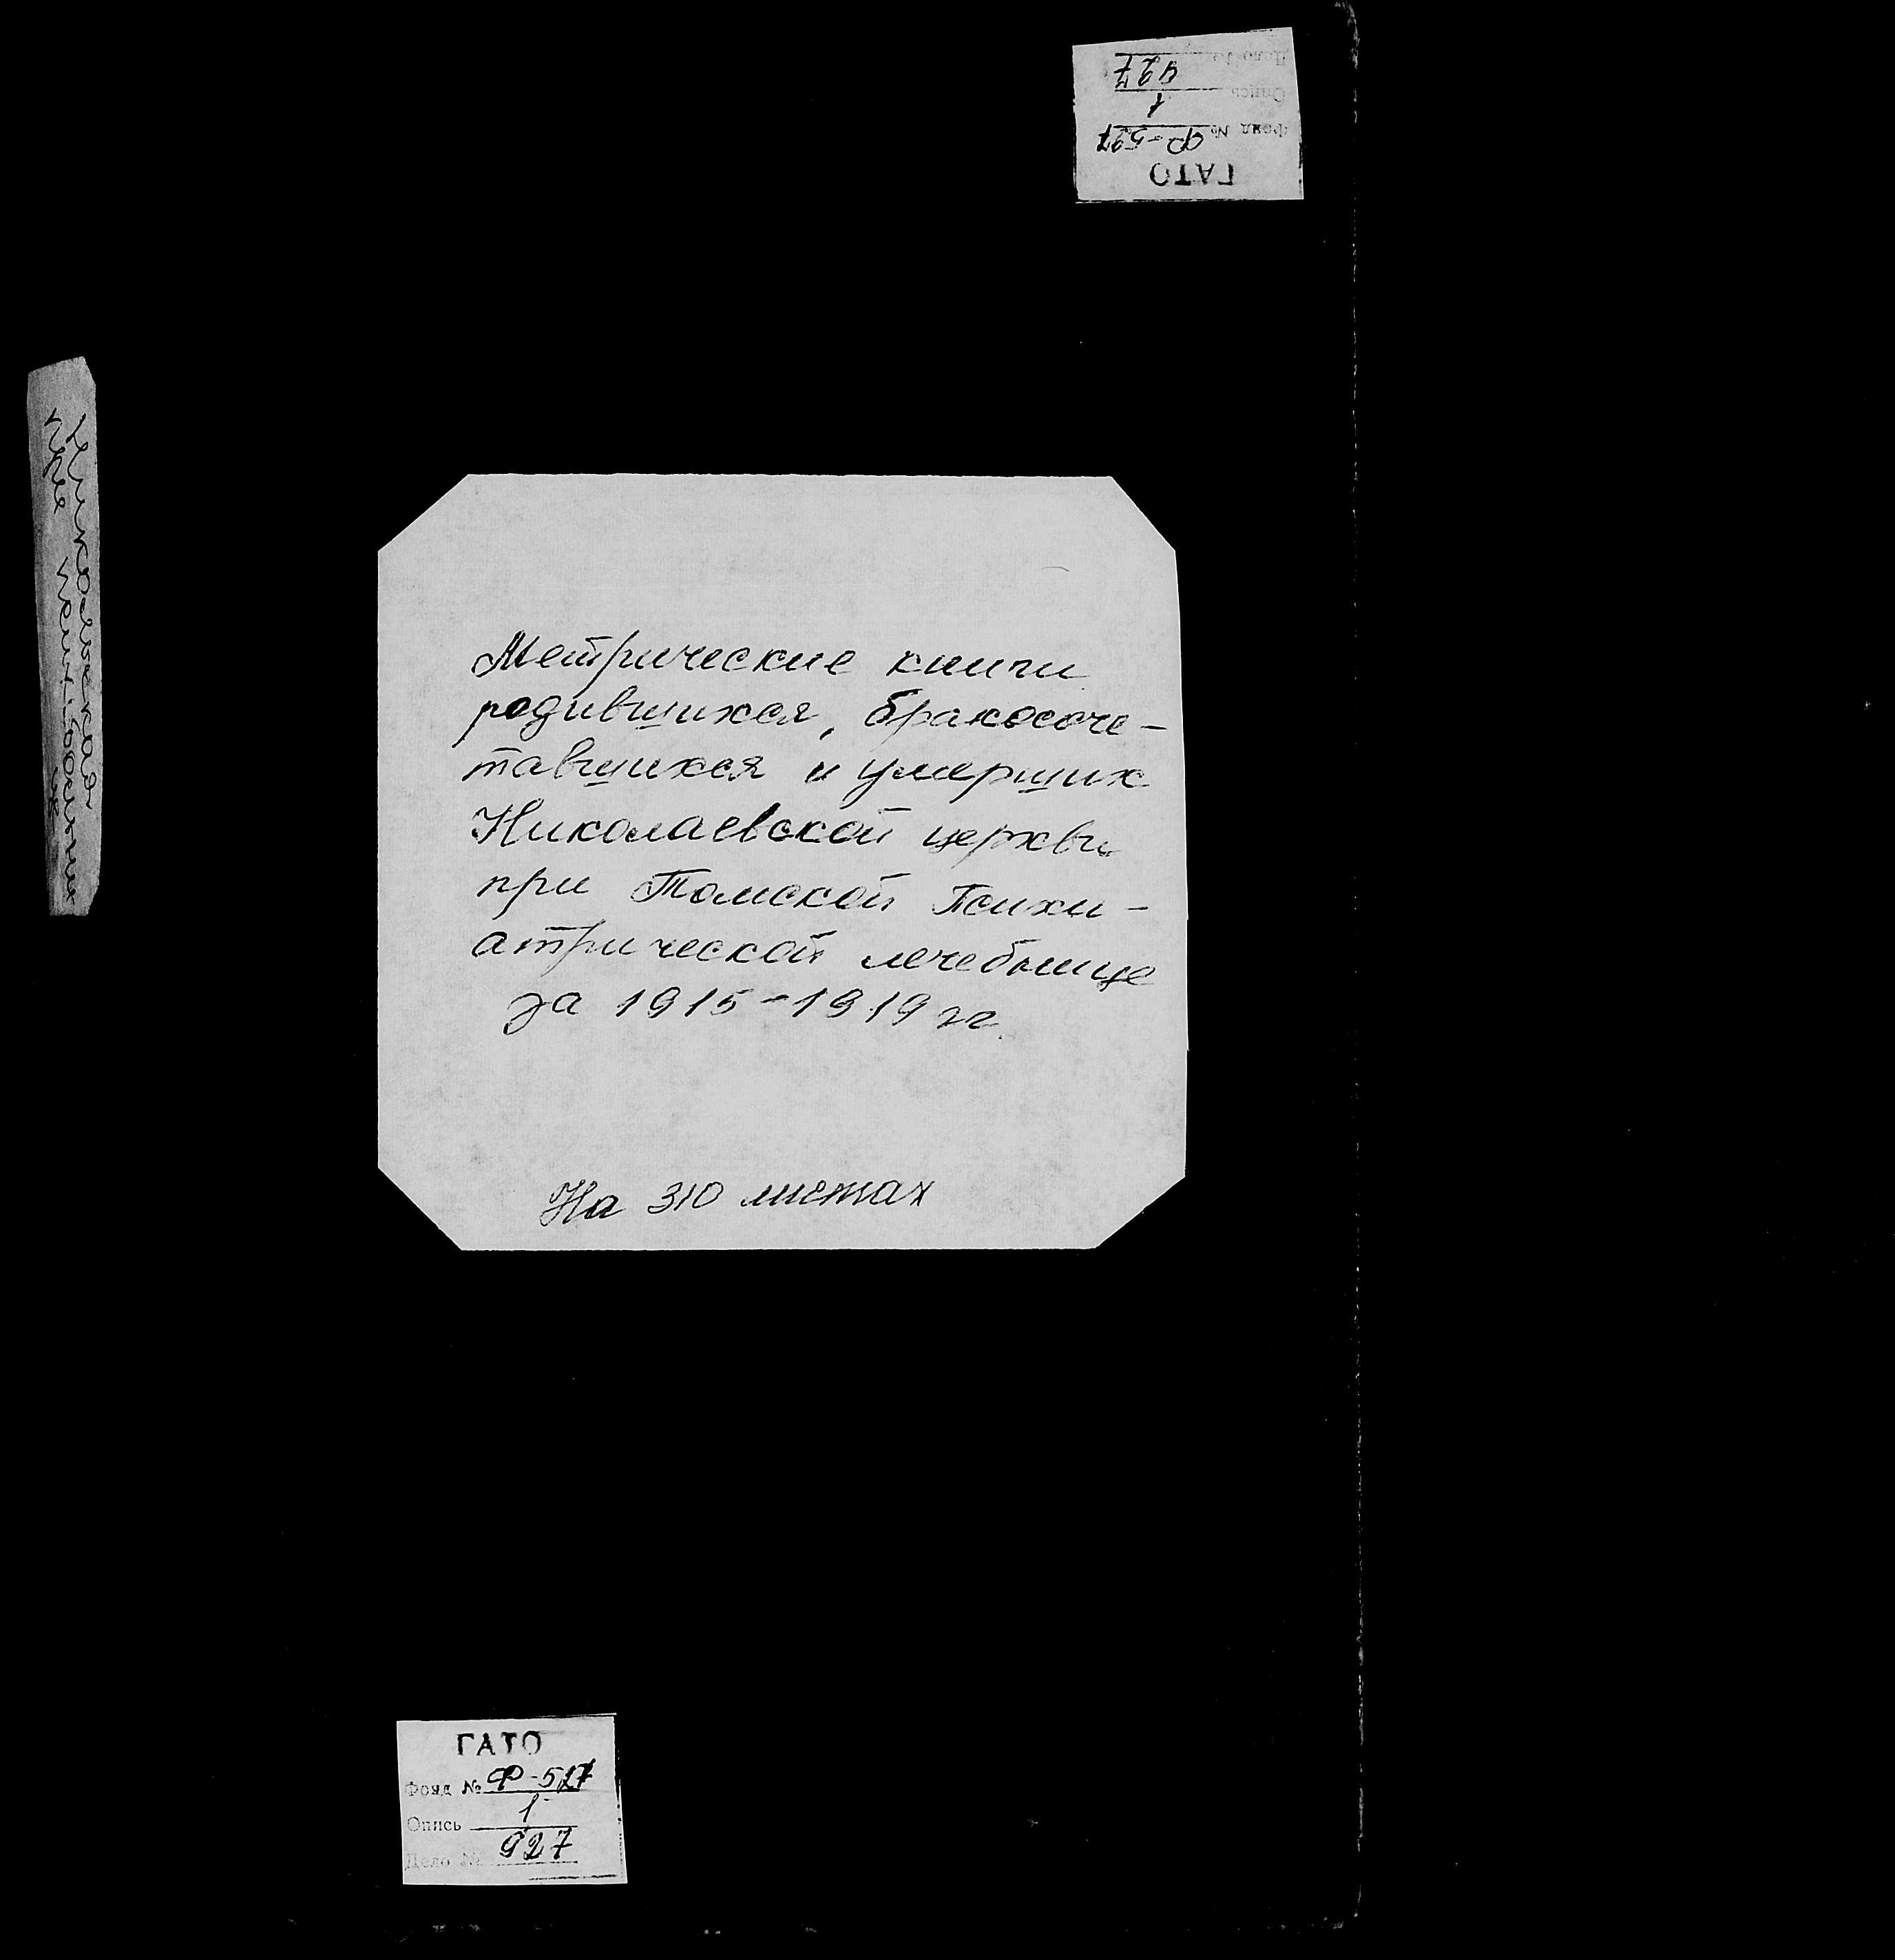 ГАТО
Фонд № Ф-527
Опись 1
Дело № 427
Николаевская
при
Метрические книги
родившихся, бракосоче-
тавшихся и умерших
Николаевской церкви
при Томской Психи-
атрической лечебнице
за 1915-1919 гг.
На 310 листах
ГАТО
Фонд № Ф-527
Опись 1
Дело № 927